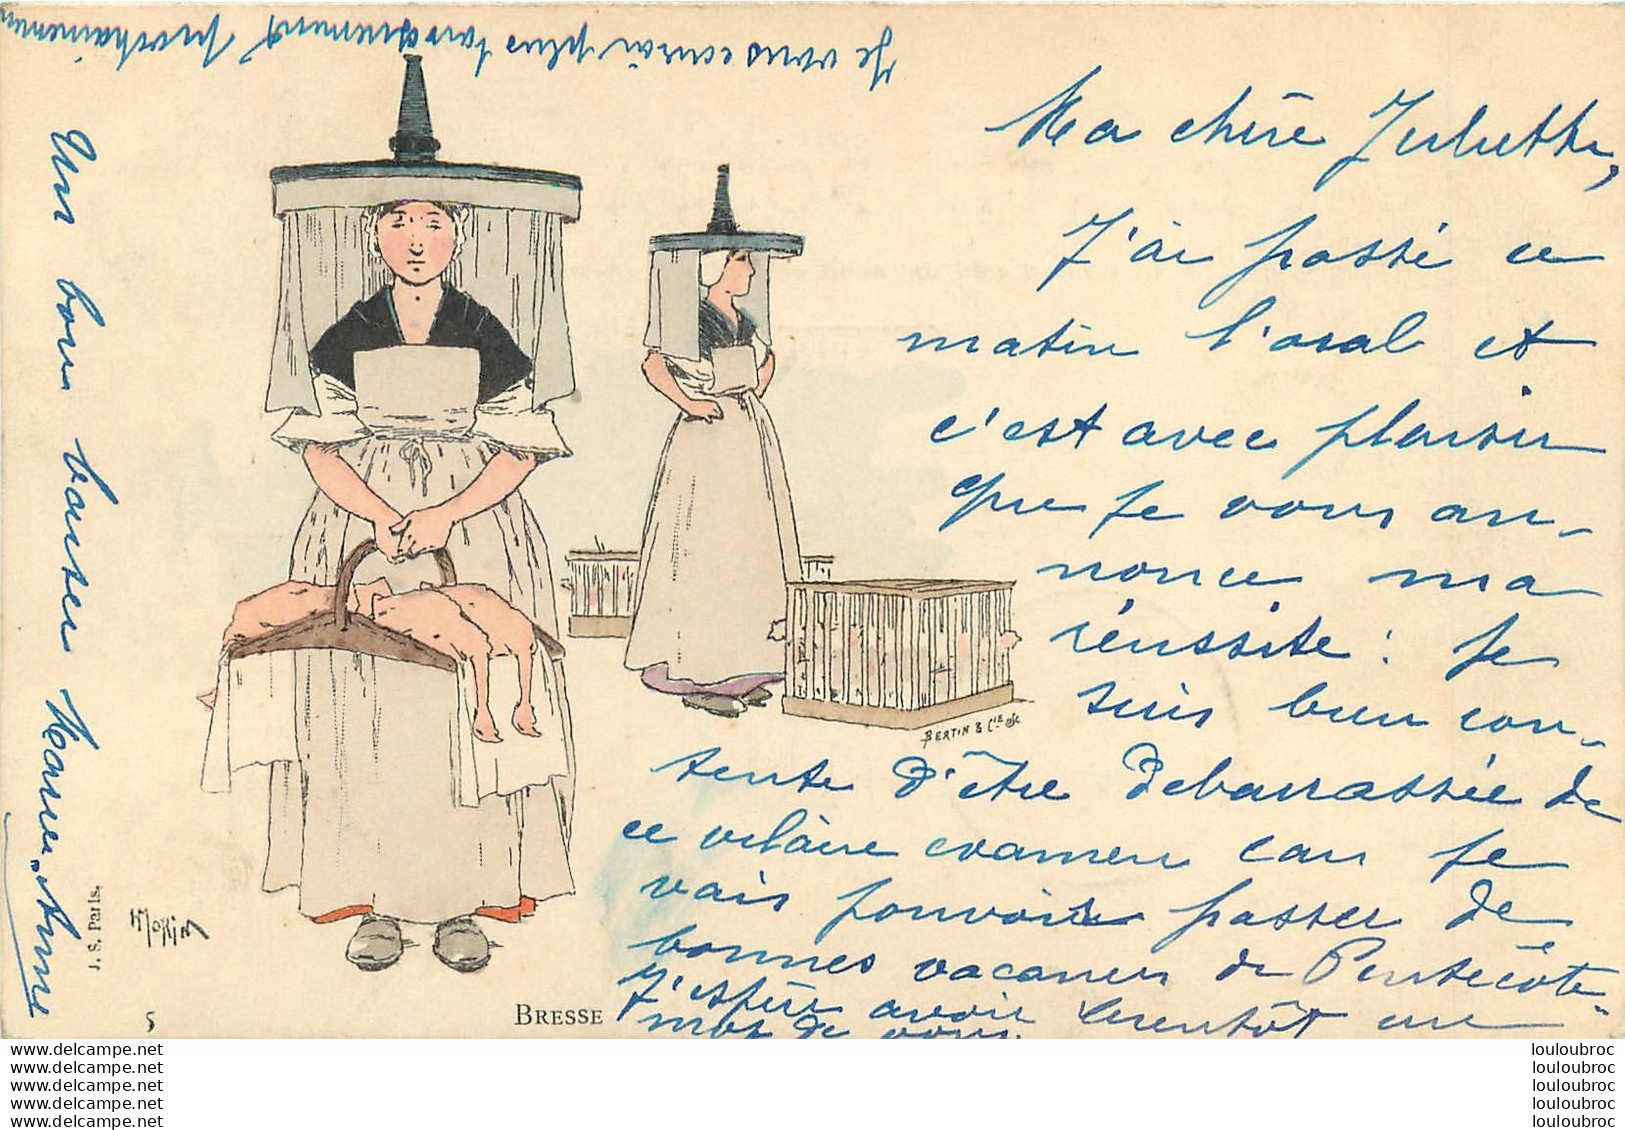 Ma chère Juliette,
J'ai passé ce
matin l'oral et
c'est avec plaisir
que je vous an-
nonce ma
réussite : je
suis bien con-
tente d'être debarrassée de
ce vilain examen car je
vais pouvoir passer de
bonnes vacances de Pentecôte.
J'espère avoir bientôt un
mot de vous.
Je vous écrirai plus longuement prochainement
Un bon baiser Marie-Anne
BERTIN & Cie
H MORIN
J. S. Paris.
5
BRESSE
www.delcampe.net
www.delcampe.net
www.delcampe.net
www.delcampe.net
www.delcampe.net
louloubroc
louloubroc
louloubroc
louloubroc
louloubroc